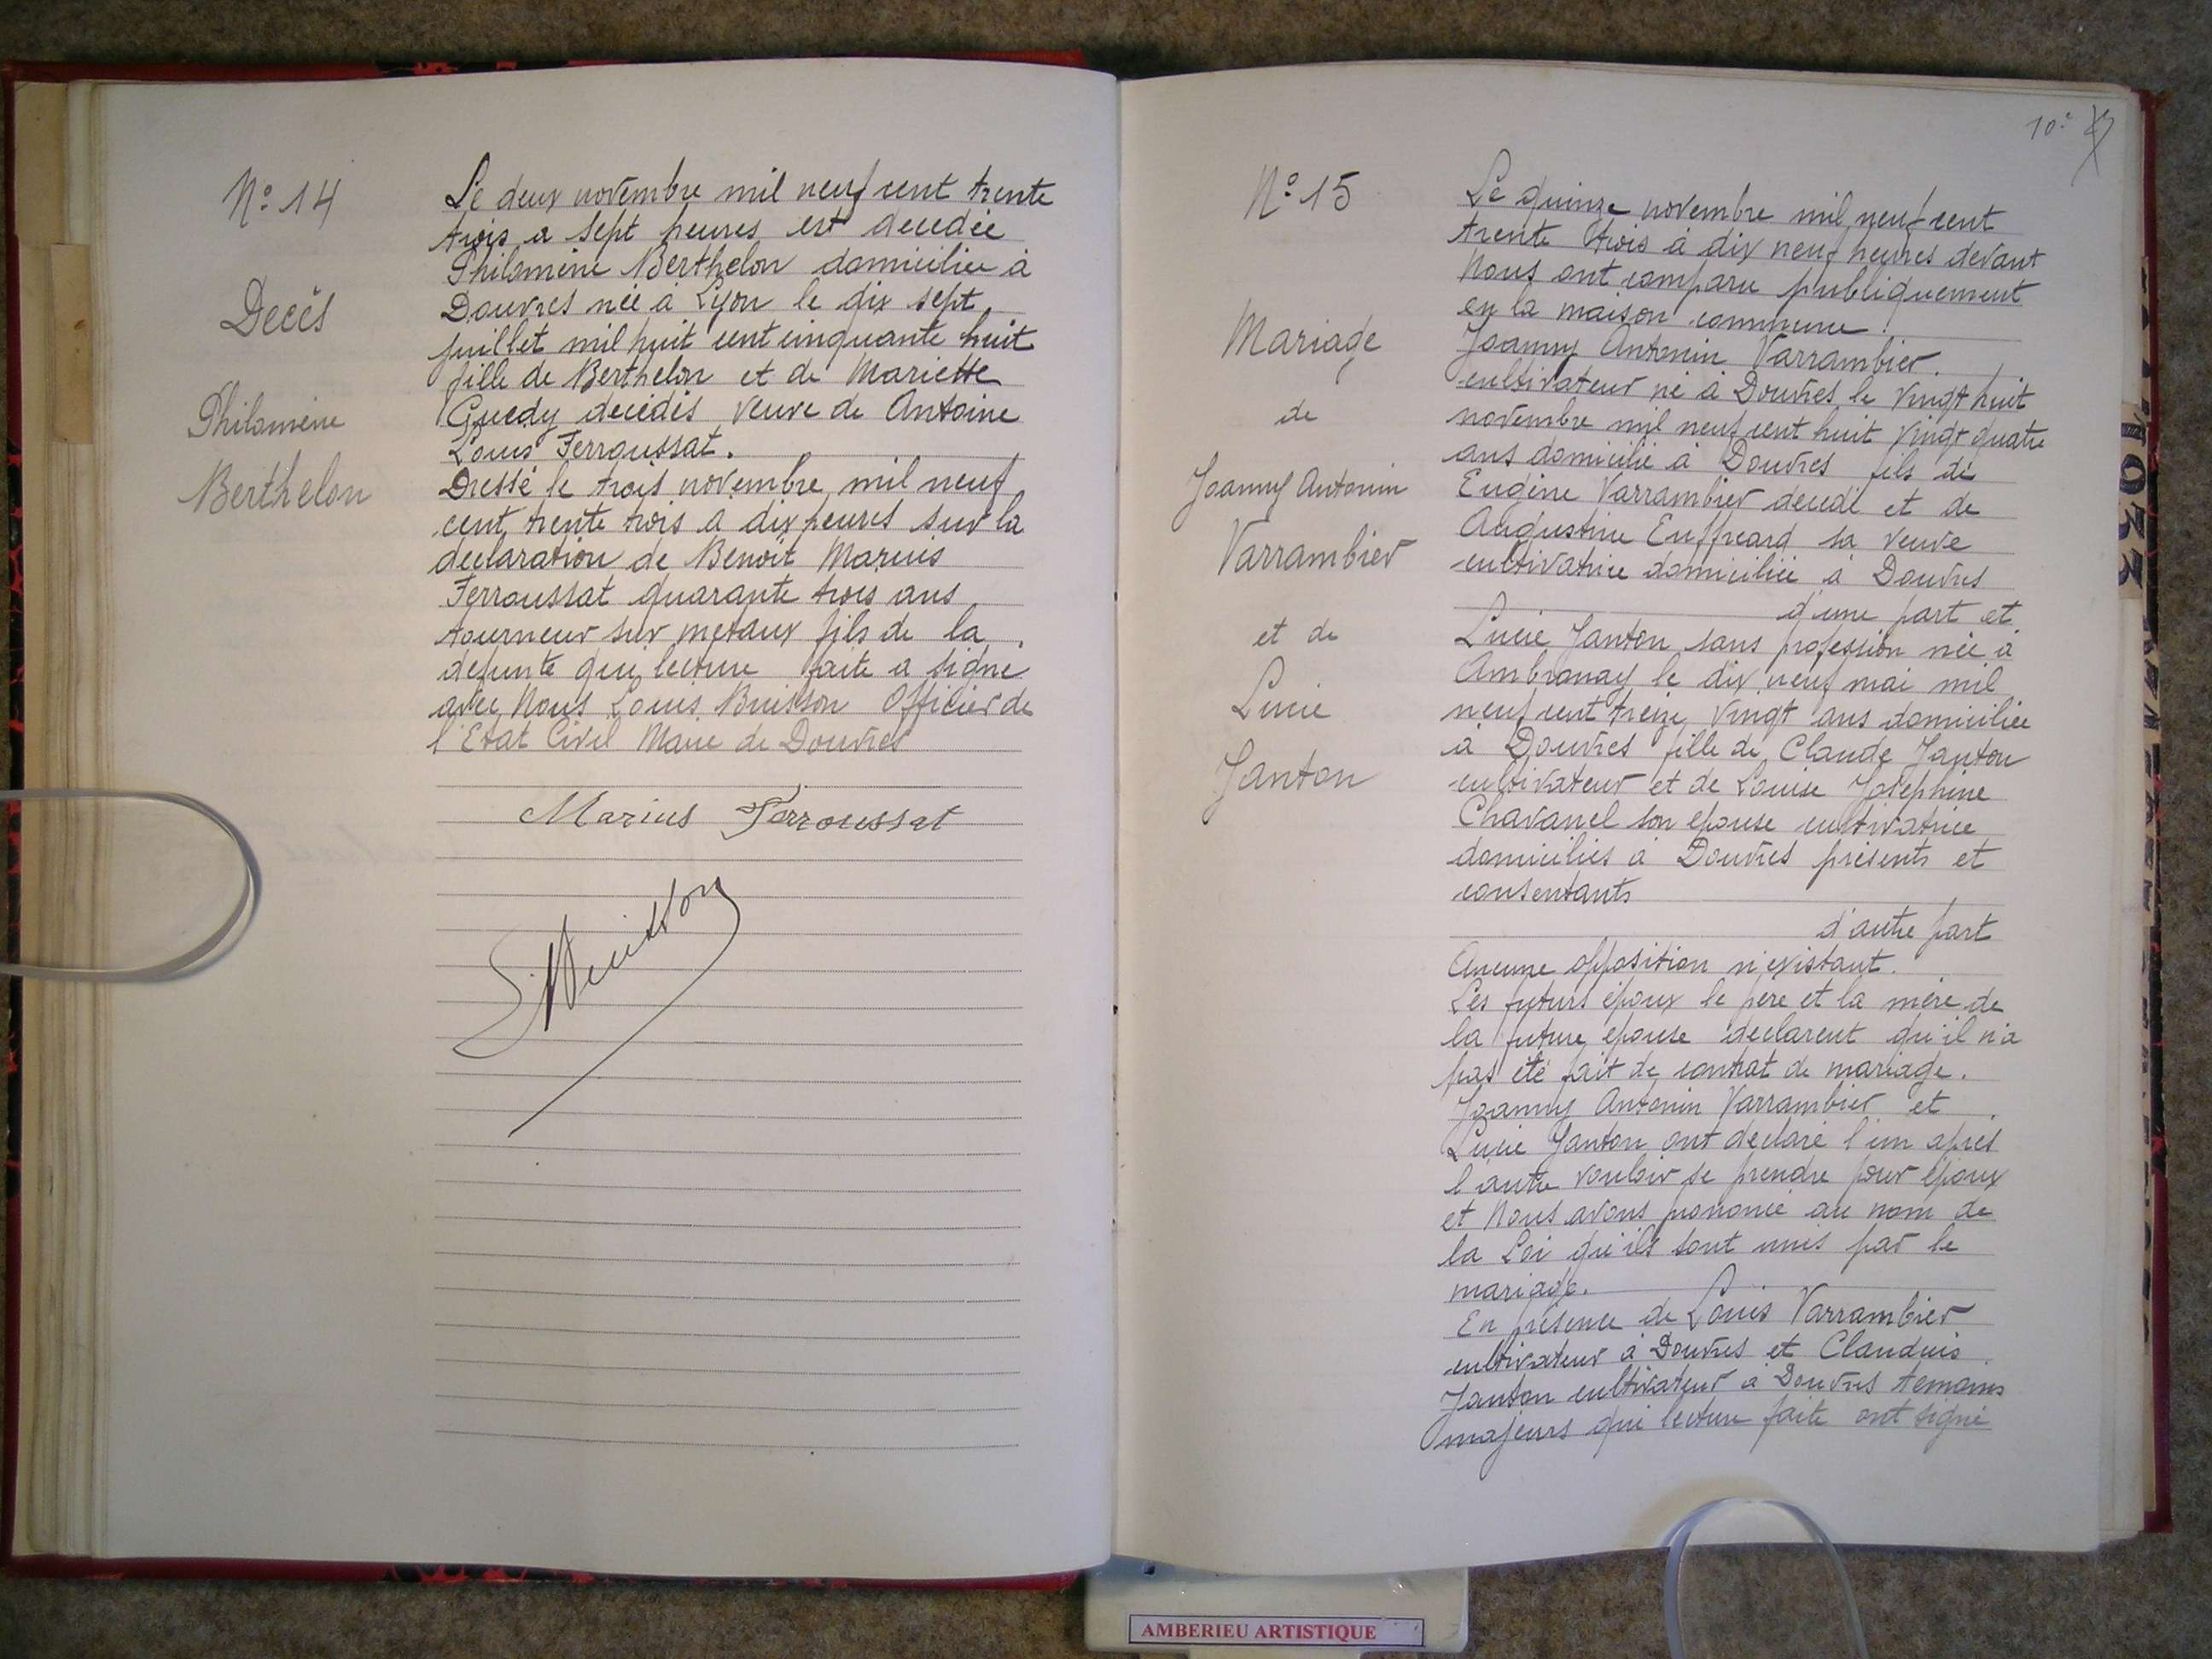 N° 14
Décès
Philomène
Berthelon
Le deux novembre mil neuf cent trente
trois a sept heures est decedée
Philomène Berthelon domiciliée à
Douvres née à Lyon le dix sept
juillet mil huit cent cinquante huit
fille de Berthelon et de Mariette
Guedy décédés, veuve de Antoine
Louis Ferroussat.
Dressé le trois novembre mil neuf
cent trente trois a dix heures sur la
declaration de Benoit Marius
Ferroussat quarante trois ans
tourneur sur metaux fils de la
defunte qui lecture faite a signé
avec Nous Louis Buisson Officier de
l'Etat Civil Maire de Douvres
Marius Ferroussat
L. Buisson
10e
N° 15
Mariage
de
Joanny Antonin
Varrambier
et de
Lucie
Janton
Le quinze novembre mil neuf cent
trente trois à dix neuf heures devant
Nous ont comparu publiquement
en la maison commune :
Joanny Antonin Varrambier.
cultivateur né à Douvres le vingt huit
novembre mil neuf cent huit vingt quatre
ans domicilié à Douvres fils de
Eugène Varrambier decedé et de
Augustine Euffreard sa veuve
cultivatrice domiciliée à Douvres
d'une part et
Lucie Janton sans profession née à
Ambronay le dix neuf mai mil
neuf cent treize vingt ans domiciliée
à Douvres fille de Claude Janton
cultivateur et de Louise Josephine
Chavanel son epouse cultivatrice
domiciliés à Douvres présents et
consentants
d'autre part
Aucune opposition n'existant.
Les futurs époux le père et la mère de
la future epouse declarent qu'il n'a
pas été fait de contrat de mariage.
Joanny Antonin Varrambier et
Lucie Janton ont declaré l'un après
l'autre vouloir se prendre pour époux
et Nous avons prononcé au nom de
la Loi qu'ils sont unis par le
mariage.
En présence de Louis Varrambier
cultivateur à Douvres et Claudius
Janton cultivateur à Douvres temoins
majeurs qui lecture faite ont signé
AMBERIEU ARTISTIQUE